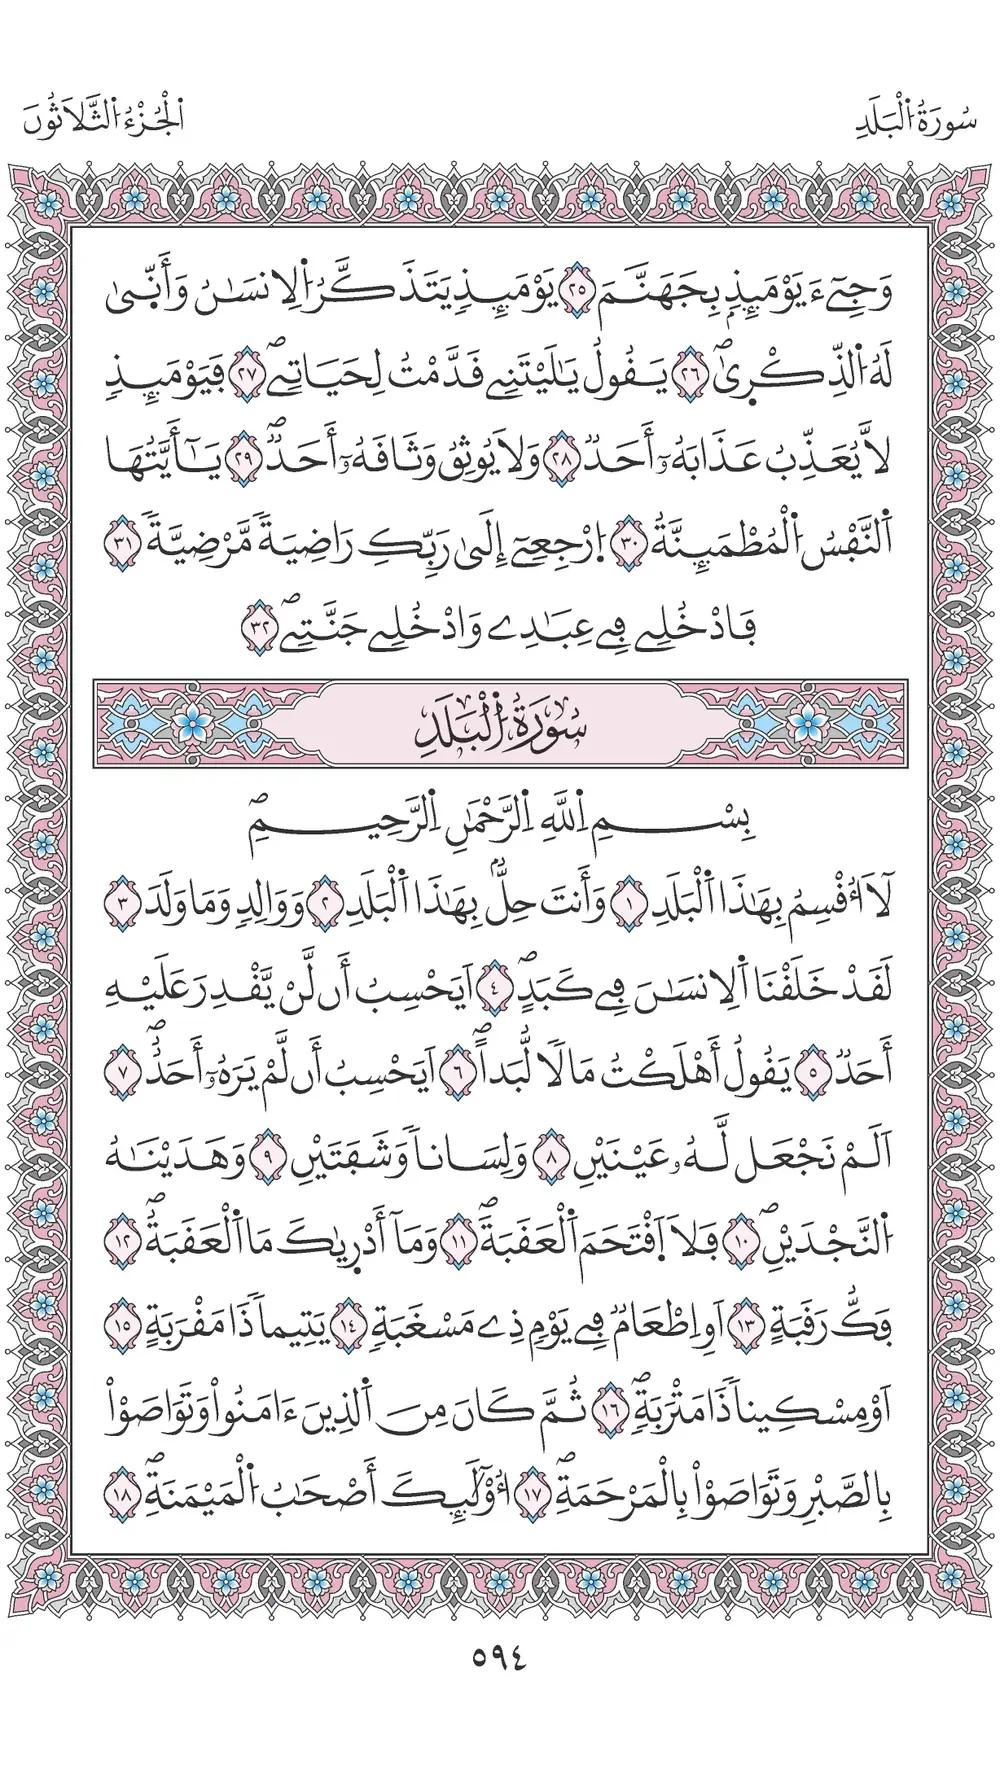 سُورَةُ اُ۬لْبَلَدِ
اَ۬لْجُزْءُ اُ۬لثَّلَاثُونَ
وَجِےٓءَ يَوْمَئِذِۢ بِجَهَنَّمَ ٢٥ يَوْمَئِذٖ يَتَذَكَّرُ اُ۬لِانسَٰنُ وَأَنّ۪يٰ
لَهُ اُ۬لذِّكْر۪يٰۖ ٢٦ يَقُولُ يَٰلَيْتَنِے قَدَّمْتُ لِحَيَاتِےۖ ٢٧ فَيَوْمَئِذٖ
لَّا يُعَذِّبُ عَذَابَهُۥٓ أَحَدٞ ٢٨ وَلَا يُوثِقُ وَثَاقَهُۥٓ أَحَدٞۖ ٢٩ يَٰٓأَيَّتُهَا
اَ۬لنَّفْسُ اُ۬لْمُطْمَئِنَّةُ ٣٠ اُ۪رْجِعِےٓ إِلَيٰ رَبِّكِ رَاضِيَةٗ مَّرْضِيَّةٗ ٣١
فَادْخُلِے فِے عِبَٰدِے وَادْخُلِے جَنَّتِےۖ ٣٢
سُورَةُ اُ۬لْبَلَدِ
بِسْمِ اِ۬للَّهِ اِ۬لرَّحْمَٰنِ اِ۬لرَّحِيمِۖ
لَآ أُقْسِمُ بِهَٰذَا اَ۬لْبَلَدِ ١ وَأَنتَ حِلُّۢ بِهَٰذَا اَ۬لْبَلَدِ ٢ وَوَالِدٖ وَمَا وَلَدَ ٣
لَقَدْ خَلَقْنَا اَ۬لِانسَٰنَ فِے كَبَدٍۖ ٤ اَيَحْسِبُ أَن لَّنْ يَّقْدِرَ عَلَيْهِ
أَحَدٞ ٥ يَقُولُ أَهْلَكْتُ مَالاٗ لُّبَداًۖ ٦ اَيَحْسِبُ أَن لَّمْ يَرَهُۥٓ أَحَدٌۖ ٧
اَلَمْ نَجْعَل لَّهُۥ عَيْنَيْنِ ٨ وَلِسَاناٗ وَشَفَتَيْنِ ٩ وَهَدَيْنَٰهُ
اُ۬لنَّجْدَيْنِۖ ١٠ فَلَا اَ۪قْتَحَمَ اَ۬لْعَقَبَةَۖ ١١ وَمَآ أَدْر۪يٰكَ مَا اَ۬لْعَقَبَةُۖ ١٢
فَكُّ رَقَبَةٍ ١٣ اَوِ اِطْعَٰمٞ فِے يَوْمٖ ذِے مَسْغَبَةٖ ١٤ يَتِيماٗ ذَا مَقْرَبَةٍ ١٥
اَوْ مِسْكِيناٗ ذَا مَتْرَبَةٖۖ ١٦ ثُمَّ كَانَ مِنَ اَ۬لذِينَ ءَامَنُواْ وَتَوَاصَوْاْ
بِالصَّبْرِ وَتَوَاصَوْاْ بِالْمَرْحَمَةِۖ ١٧ أُوْلَٰٓئِكَ أَصْحَٰبُ اُ۬لْمَيْمَنَةِۖ ١٨
٥٩٤